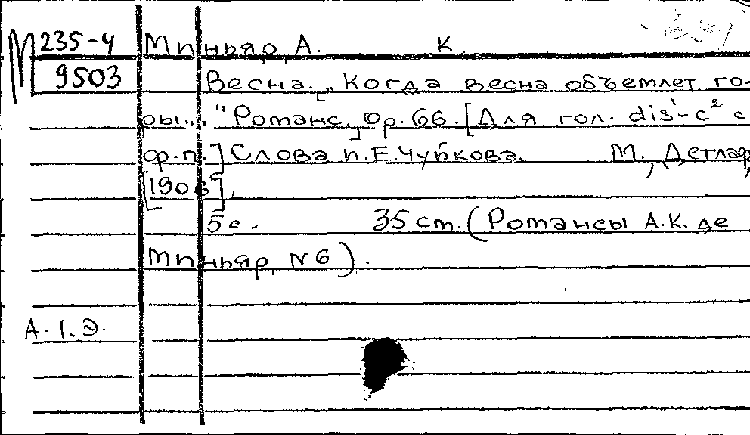 М 235-4 Миньяр, А. К.
9503 Весна. „Когда весна объемлет го-
ры..." Романс, op. 66. [Для гол. dis¹-c² с
ф.п.] Слова П.Е. Чуйкова. М., Детлаф,
[1906].
5 с. 35 см. (Романсы А.К. де
Миньяр, N 6).
А.I.Э.